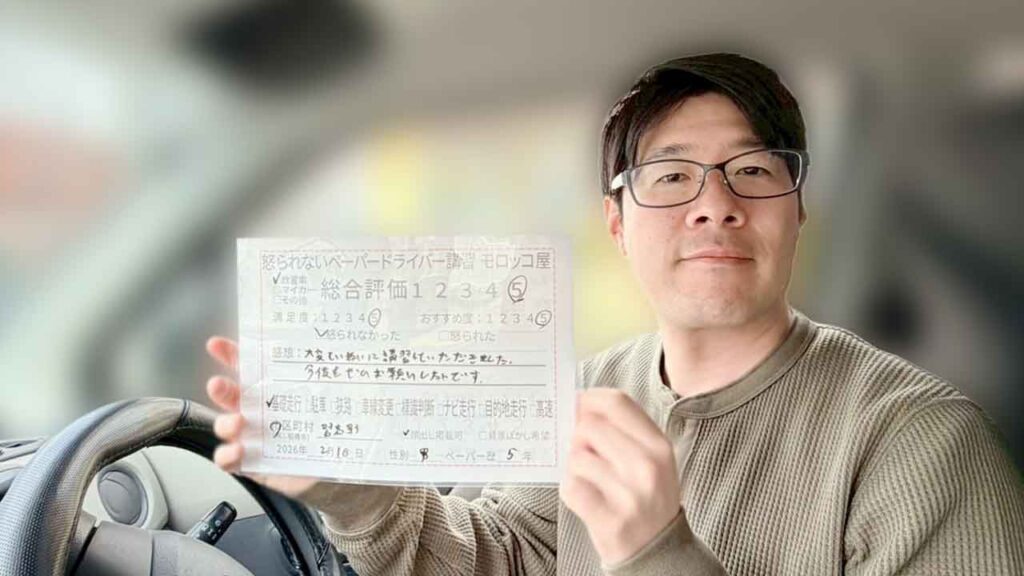 怒られないペーパードライバー講習 モロッコ屋
✓教習車
□マイカー
□その他
総合評価 1 2 3 4 ⑤
満足度:1 2 3 4 ⑤ おすすめ度:1 2 3 4 ⑤
✓怒られなかった □怒られた
感想:大変ていねいに講習していただきました。
今後もぜひお願いしたいです。
✓基礎走行 □駐車 □狭路 □車線変更 □標識判断 □ナビ走行 □目的地走行 □高速
区町村 習志野
✓顔出し掲載可 □背景ぼかし希望
2026年 2月10日 性別 男 ペーパー歴 5年